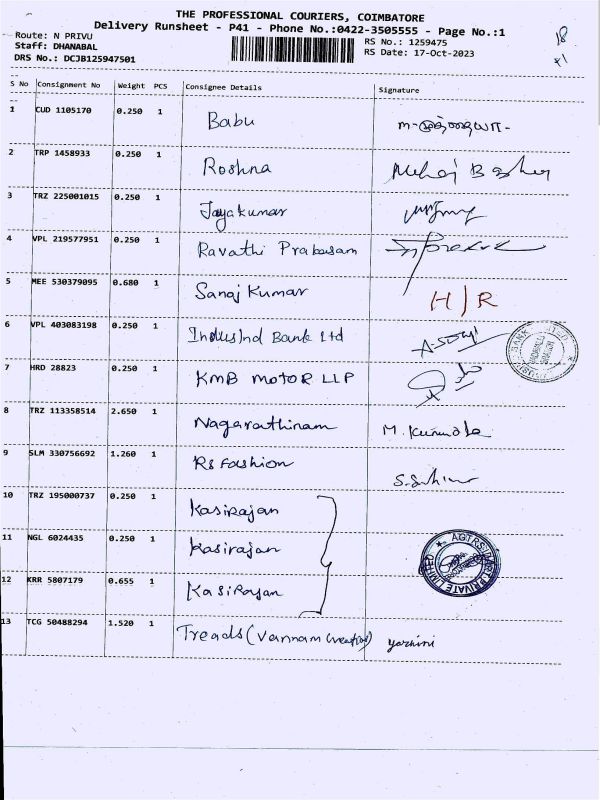 THE PROFESSIONAL COURIERS, COIMBATORE
Delivery Runsheet - P41 - Phone No.:0422-3505555 - Page No.:1
Route: N PRIVU RS No.: 1259475
Staff: DHANABAL RS Date: 17-Oct-2023
DRS No.: DCJB125947501
18
S No Consignment No Weight PCS Consignee Details Signature
1 CUD 1105170 0.250 1 Babu
2 TRP 1458933 0.250 1 Roshna
3 TRZ 225001015 0.250 1 Jayakumar
4 VPL 219577951 0.250 1 Ravathi Prabasam
5 MEE 530379095 0.680 1 Sanaj Kumar H/R
6 VPL 403083198 0.250 1 IndusInd Bank Ltd
7 HRD 28823 0.250 1 KMB MOTOR LLP
8 TRZ 113358514 2.650 1 Nagarathinam M.
9 SLM 330756692 1.260 1 RS Fashion
10 TRZ 195000737 0.250 1 Kasirajan
11 NGL 6024435 0.250 1 Kasirajan
12 KRR 5807179 0.655 1 Kasirajan
PRIVATE LIMITED
13 TCG 50488294 1.520 1 Treads (Vannam Creation) yazhini